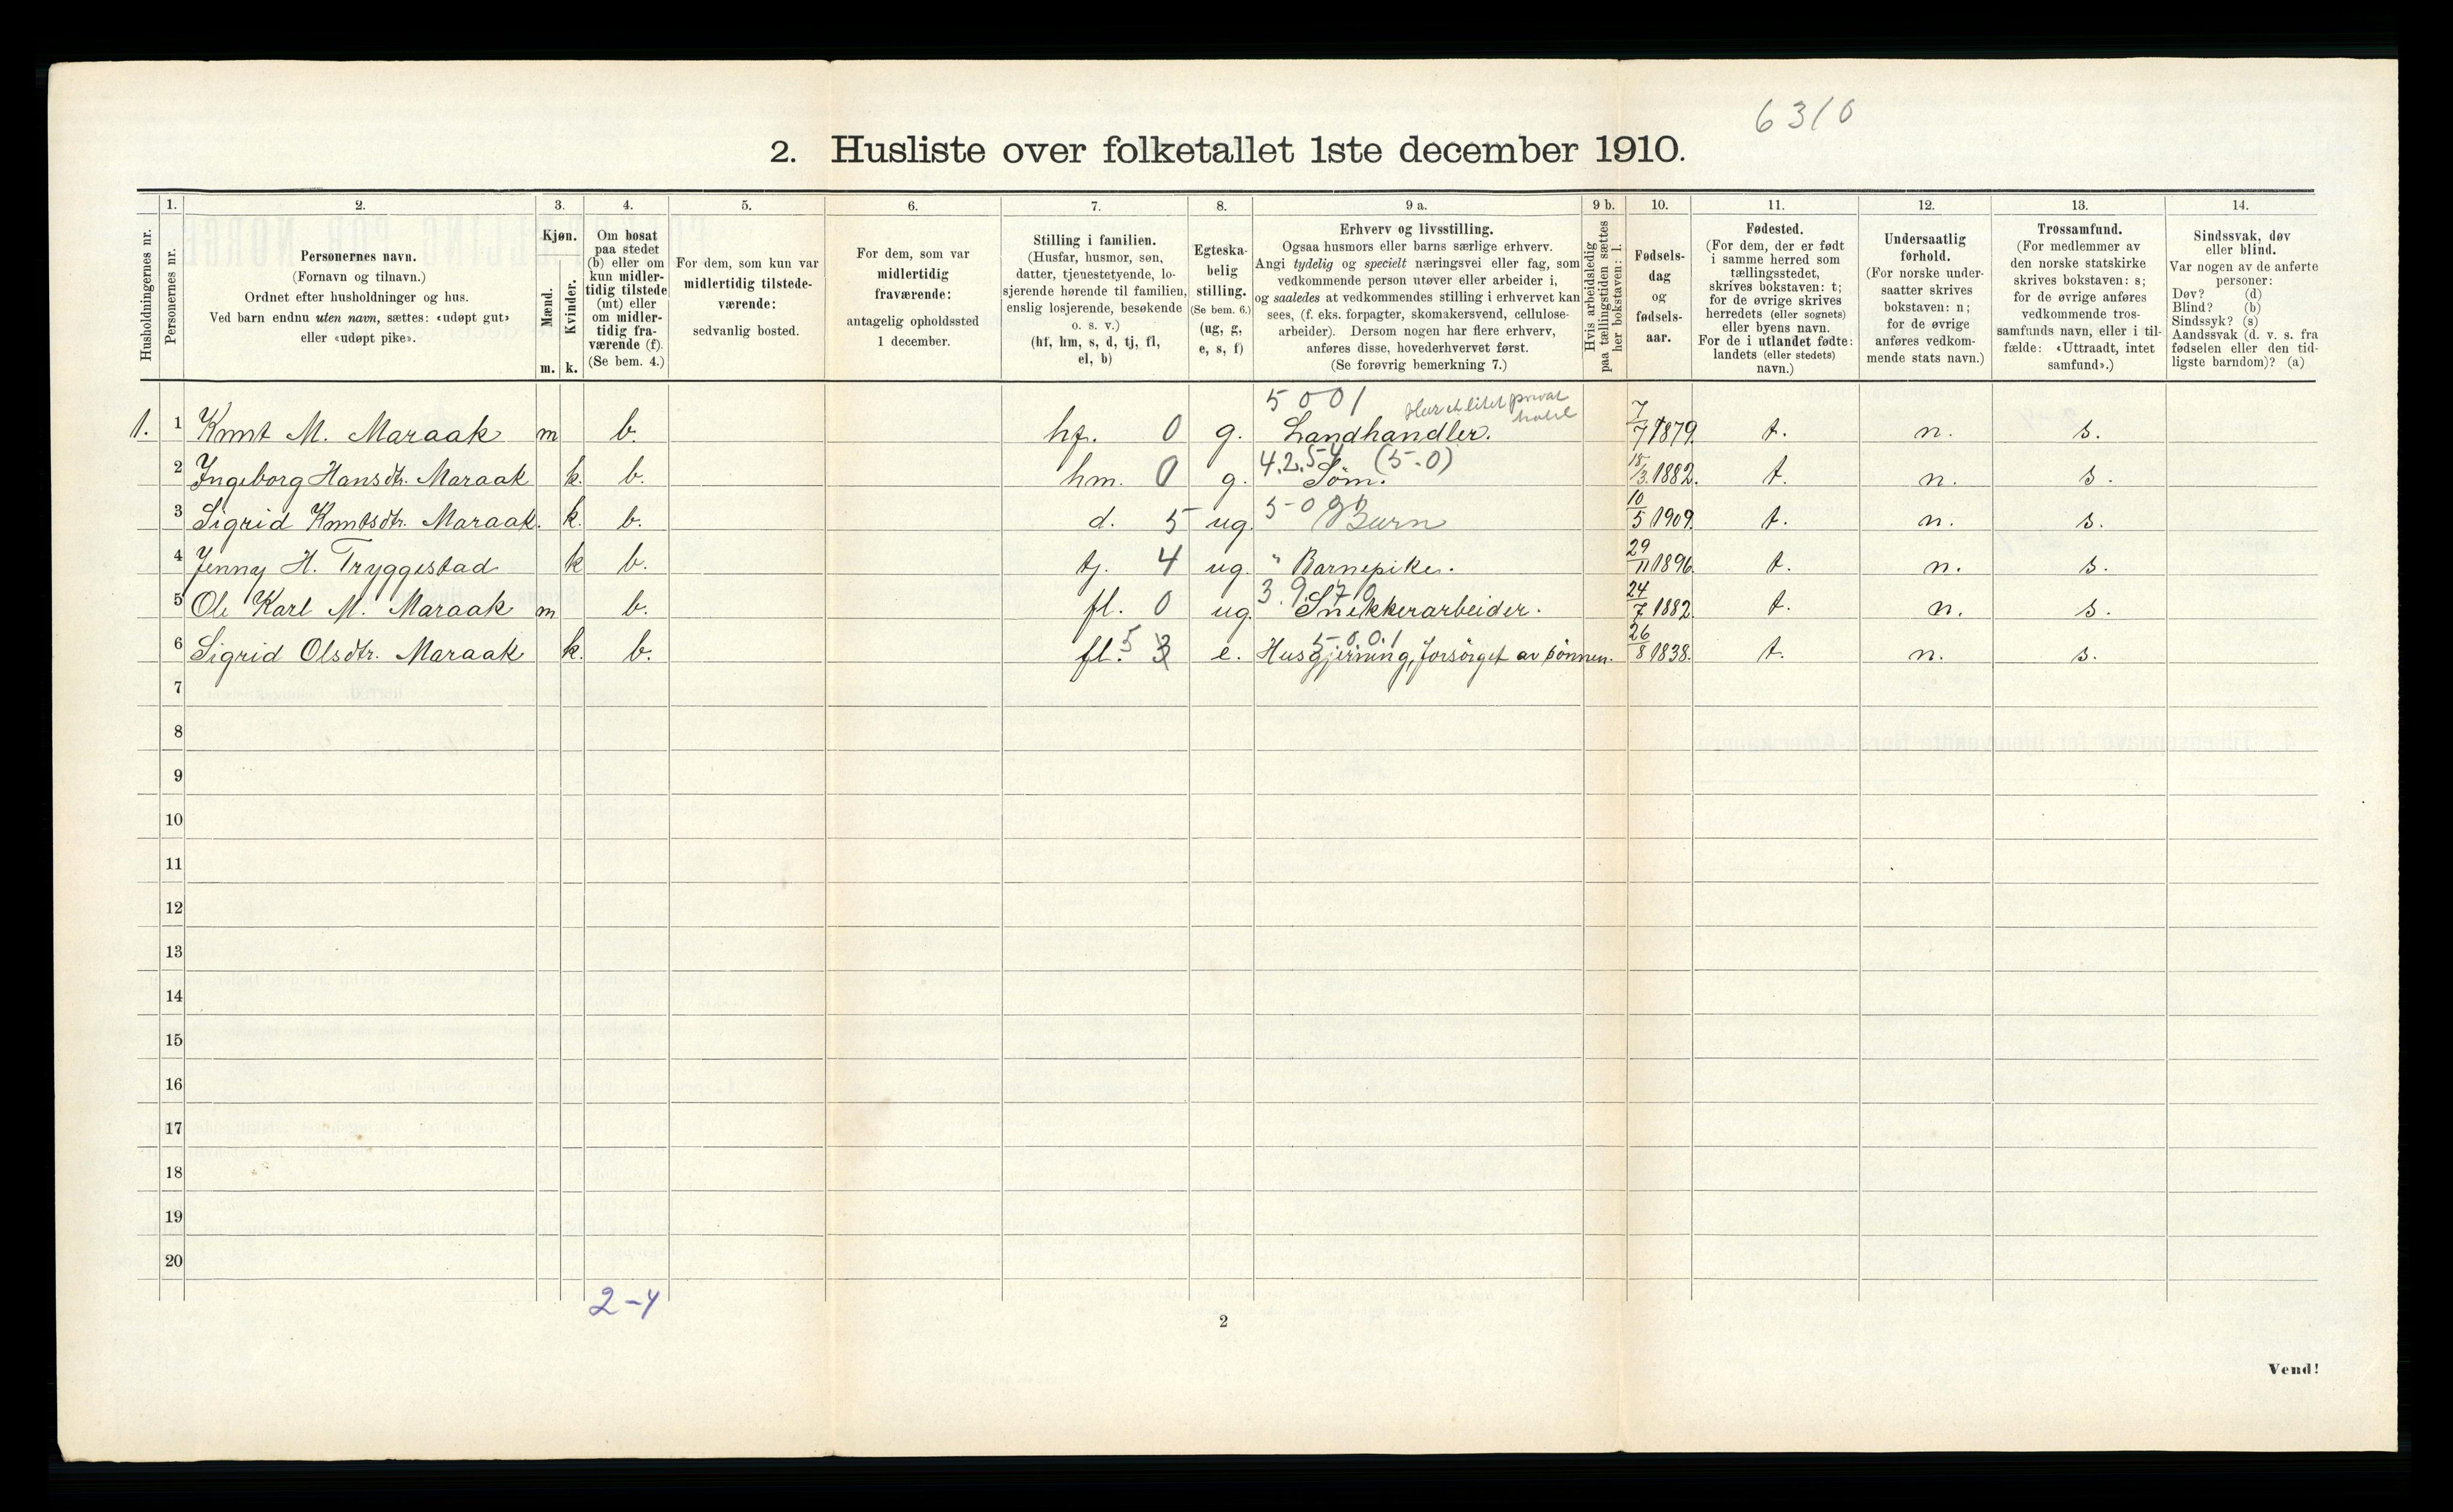 6310
2. Husliste over folketallet 1ste december 1910.
Husholdningernes nr.
1.
Personernes nr.
2.
Personernes navn.
(Fornavn og tilnavn.)
Ordnet efter husholdninger og hus.
Ved barn endnu uten navn, sættes: «udøpt gut»
eller «udøpt pike».
3.
Kjøn.
Mænd.
Kvinder.
m. k.
4.
Om bosat
paa stedet
(b) eller om
kun midler-
tidig tilstede
(mt) eller
om midler-
tidig fra-
værende (f).
(Se bem. 4.)
5.
For dem, som kun var
midlertidig tilstede-
værende:
sedvanlig bosted.
6.
For dem, som var
midlertidig
fraværende:
antagelig opholdssted
1 december.
7.
Stilling i familien.
(Husfar, husmor, søn,
datter, tjenestetyende, lo-
sjerende hørende til familien,
enslig losjerende, besøkende
o. s. v.)
(hf, hm, s, d, tj, fl,
el, b)
8.
Egteska-
belig
stilling.
(Se bem. 6.)
(ug, g,
e, s, f)
9 a.
Erhverv og livsstilling.
Ogsaa husmors eller barns særlige erhverv.
Angi tydelig og specielt næringsvei eller fag, som
vedkommende person utøver eller arbeider i,
og saaledes at vedkommendes stilling i erhvervet kan
sees, (f. eks. forpagter, skomakersvend, cellulose-
arbeider). Dersom nogen har flere erhverv,
anføres disse, hovederhvervet først.
(Se forøvrig bemerkning 7.)
9 b.
Hvis arbeidsledig
paa tællingstiden sættes
her bokstaven: l.
10.
Fødsels-
dag
og
fødsels-
aar.
11.
Fødested.
(For dem, der er født
i samme herred som
tællingsstedet,
skrives bokstaven: t;
for de øvrige skrives
herredets (eller sognets)
eller byens navn.
For de i utlandet fødte:
landets (eller stedets)
navn.)
12.
Undersaatlig
forhold.
(For norske under-
saatter skrives
bokstaven: n;
for de øvrige
anføres vedkom-
mende stats navn.)
13.
Trossamfund.
(For medlemmer av
den norske statskirke
skrives bokstaven: s;
for de øvrige anføres
vedkommende tros-
samfunds navn, eller i til-
fælde: «Uttraadt, intet
samfund».)
14.
Sindssvak, døv
eller blind.
Var nogen av de anførte
personer:
Døv? (d)
Blind? (b)
Sindssyk? (s)
Aandssvak (d. v. s. fra
fødselen eller den tid-
ligste barndom)? (a)
5001 Har et litet privat hotel
1. 1 Knut M. Maraak m b. hf. 0 g. Landhandler. 7/7 1879. t. n. s.
4.2.54 (5-0)
2 Ingeborg Hansdtr. Maraak k. b. hm. 0 g. Söm. 18/3 1882. t. n. s.
3 Sigrid Knutsdtr. Maraak. k. b. d. 5 ug. Barn 10/5 1909. t. n. s.
4 Jenny H. Tryggestad k b. tj. 4 ug. " Barnepike. 29/11 1896. t. n. s.
3.9.70
5 Ole Karl M. Maraak m b. fl. 0 ug. Snekkerarbeider. 24/7 1882. t. n. s.
5-0.0.1
6 Sigrid Olsdtr. Maraak k. b. fl. 5 3 e. Husgjerning, forsörget av sönnen. 26/8 1838. t. n. s.
7
8
9
10
11
12
13
14
15
16
17
18
19
20
2-4
2
Vend!